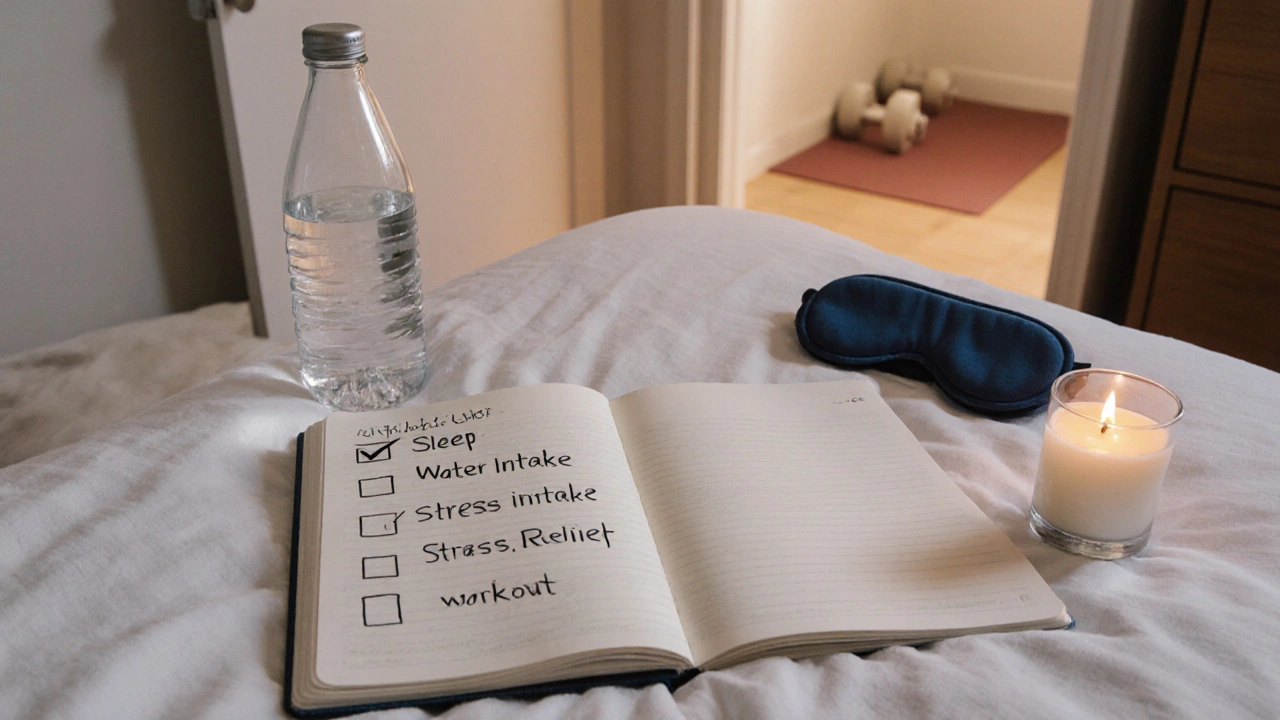 Sleep
Water Intake
Stress intake
Stress. Relief
workout